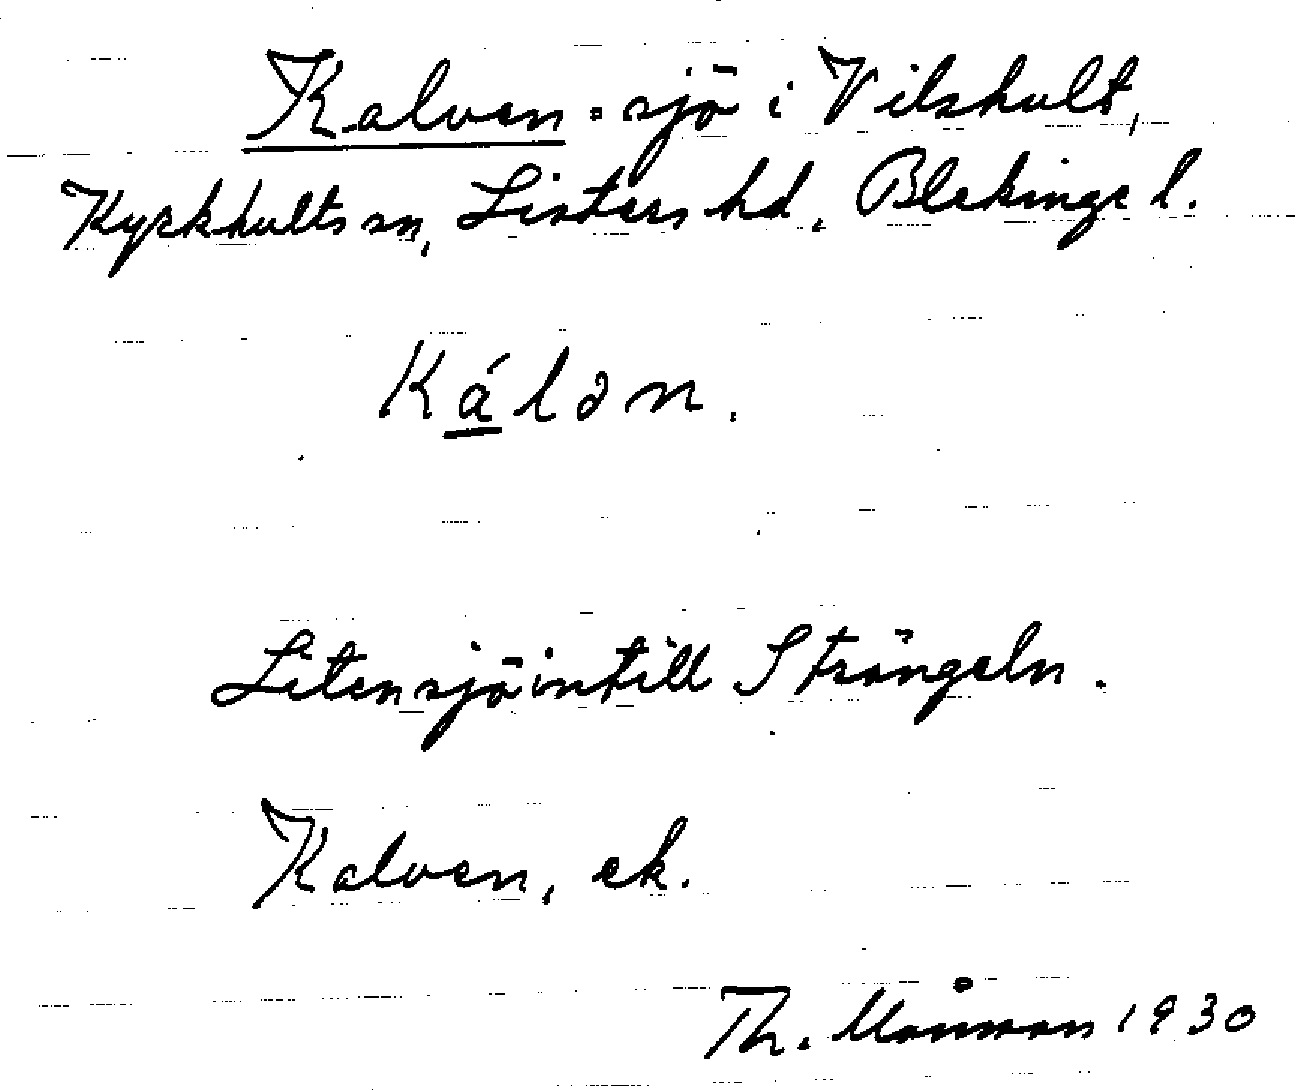 Kalven. sjö i Vilshult,
Kyrkhults sn, Listers hd, Blekinge l.
Kálən.
Liten sjö intill Strängeln.
Kalven, ek.
Th. Månsson 1930